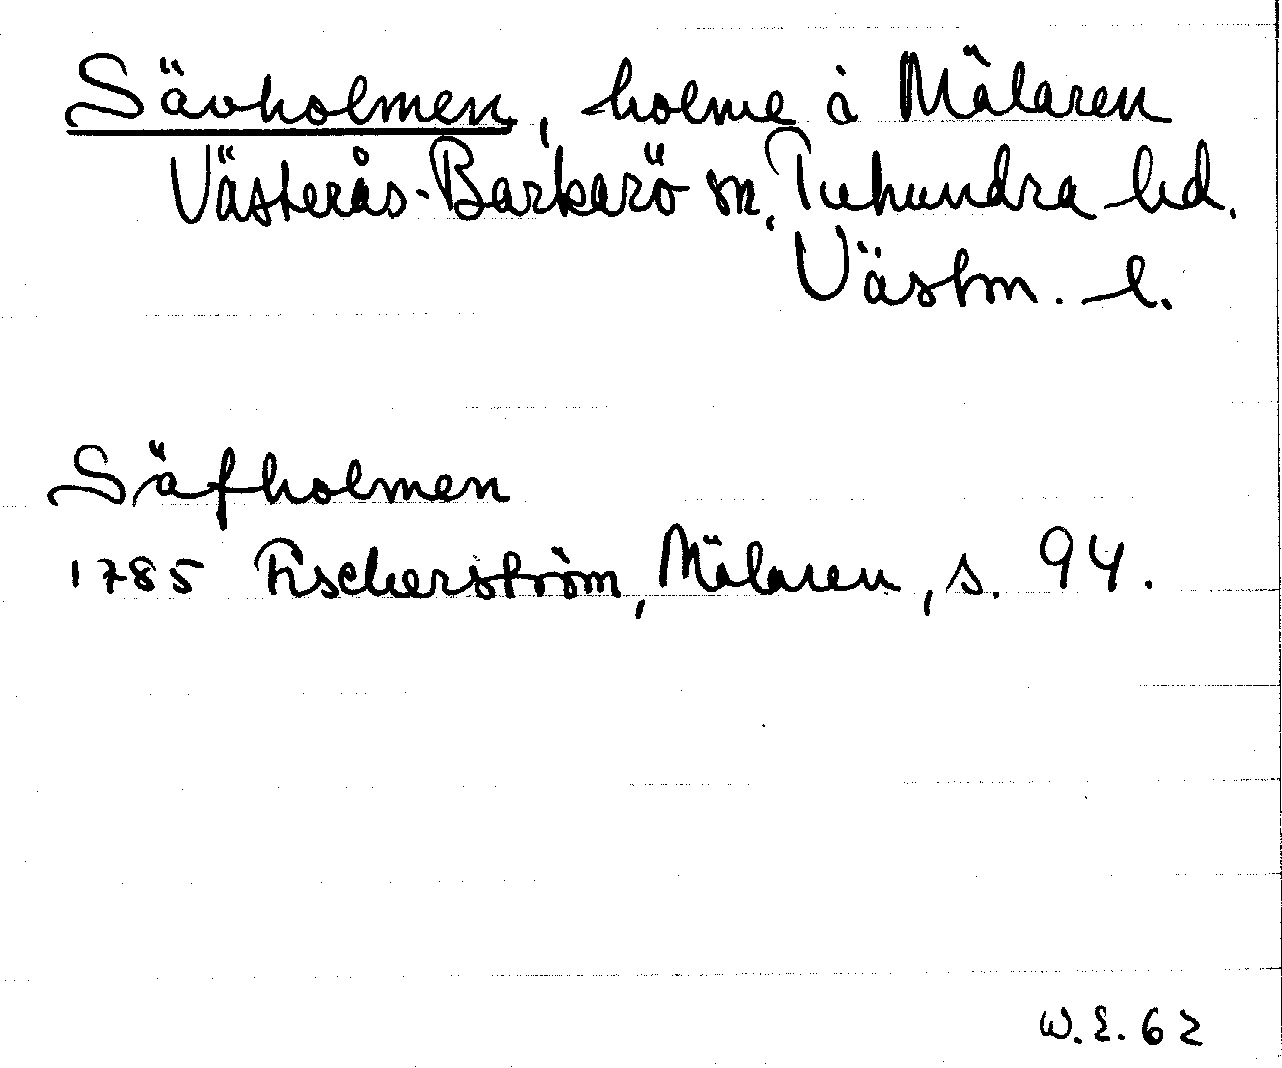 Sävholmen, holme i Mälaren
Västerås-Barkarö sn, Tuhundra hd.
Västm. l.
Säfholmen
1785 Fischerström, Mälaren, s. 94.
W.E. 62